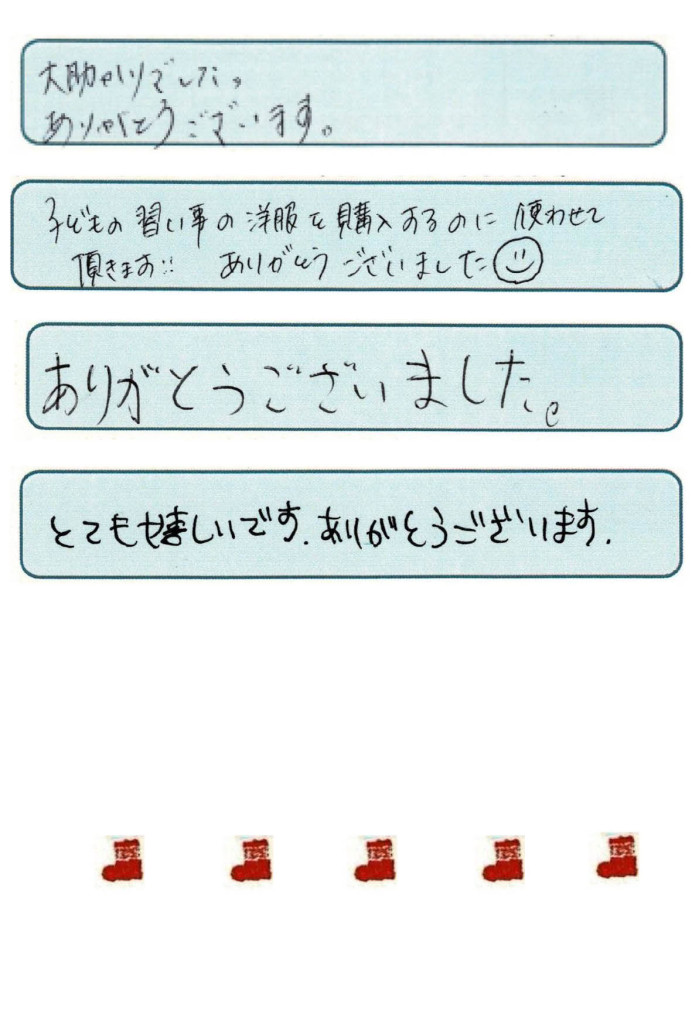 大助かりでした。
ありがとうございます。
子どもの習い事の洋服を購入するのに使わせて
頂きます!! ありがとうございました
ありがとうございました。
とても嬉しいです.ありがとうございます.